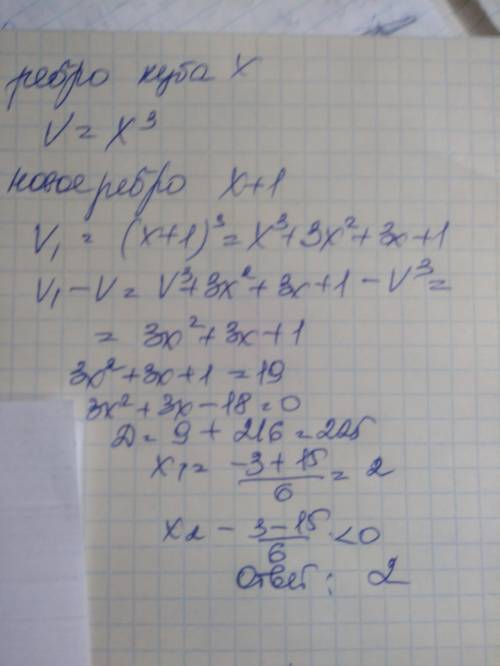 ребро куба x
V = x³
новое ребро x+1
V₁ = (x+1)³ = x³+3x²+3x+1
V₁ - V = V³+3x²+3x+1 - V³ =
= 3x²+3x+1
3x²+3x+1 = 19
3x²+3x-18=0
D = 9 + 216 = 225
x₁ = (-3+15)/6 = 2
x₂ - (3-15)/6 < 0
Ответ: 2